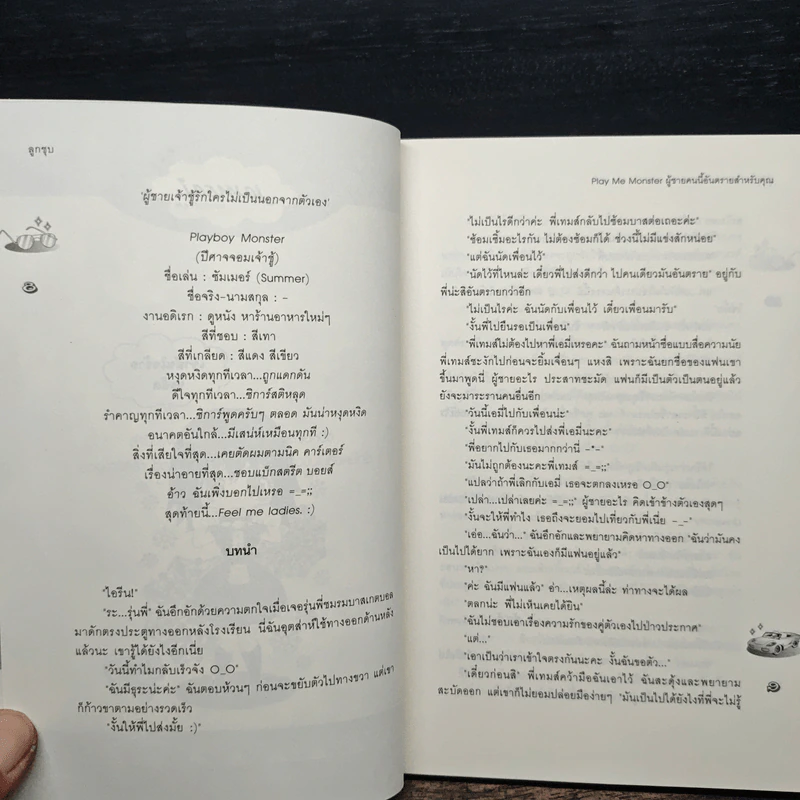 ลูกชุบ
'ผู้ชายเจ้าชู้รักใครไม่เป็นนอกจากตัวเอง'
Playboy Monster
(ปีศาจจอมเจ้าชู้)
ชื่อเล่น : ซัมเมอร์ (Summer)
ชื่อจริง-นามสกุล : -
งานอดิเรก : ดูหนัง หาร้านอาหารใหม่ๆ
สีที่ชอบ : สีเทา
สีที่เกลียด : สีแดง สีเขียว
หงุดหงิดทุกทีเวลา...ถูกแดกดัน
ดีใจทุกทีเวลา...ซิการ์สติหลุด
รำคาญทุกทีเวลา...ซิการ์พูดครับๆ ตลอด มันน่าหงุดหงิด
อนาคตอันใกล้...มีเสน่ห์เหมือนทุกที :)
สิ่งที่เสียใจที่สุด...เคยตัดผมตามนิค คาร์เตอร์
เรื่องน่าอายที่สุด...ชอบแบ็กสตรีต บอยส์
อ้าว ฉันเพิ่งบอกไปเหรอ =_=;;
สุดท้ายนี้...Feel me ladies. :)
บทนำ
"ไอรีน!"
"ระ...รุ่นพี่" ฉันอึกอักด้วยความตกใจเมื่อเจอรุ่นพี่ชมรมบาสเกตบอล
มาดักตรงประตูทางออกหลังโรงเรียน นี่ฉันอุตส่าห์ใช้ทางออกด้านหลัง
แล้วนะ เขารู้ได้ยังไงอีกเนี่ย
"วันนี้ทำไมกลับเร็วจัง O_O"
"ฉันมีธุระน่ะค่ะ" ฉันตอบห้วนๆ ก่อนจะขยับตัวไปทางขวา แต่เขา
ก็ก้าวขาตามอย่างรวดเร็ว
"งั้นให้พี่ไปส่งมั้ย :)"
Play Me Monster ผู้ชายคนนี้อันตรายสำหรับคุณ
"ไม่เป็นไรดีกว่าค่ะ พี่เทมส์กลับไปซ้อมบาสต่อเถอะค่ะ"
"ซ้อมเซิ้มอะไรกัน ไม่ต้องซ้อมก็ได้ ช่วงนี้ไม่มีแข่งสักหน่อย"
"แต่ฉันนัดเพื่อนไว้"
"นัดไว้ที่ไหนล่ะ เดี๋ยวพี่ไปส่งดีกว่า ไปคนเดียวมันอันตราย" อยู่กับ
พี่น่ะสิอันตรายกว่าอีก
"ไม่เป็นไรค่ะ ฉันนัดกับเพื่อนไว้ เดี๋ยวเพื่อนมารับ"
"งั้นพี่ไปยืนรอเป็นเพื่อน"
"พี่เทมส์ไม่ต้องไปหาพี่เอมี่เหรอคะ" ฉันถามหน้าซื่อแบบสื่อความนัย
พี่เทมส์ชะงักไปก่อนจะยิ้มเจื่อนๆ แหงสิ เพราะฉันยกชื่อของแฟนเขา
ขึ้นมาพูดนี่ ผู้ชายอะไร ประสาทชะมัด แฟนก็มีเป็นตัวเป็นตนอยู่แล้ว
ยังจะมาระรานคนอื่นอีก
"วันนี้เอมี่ไปกับเพื่อนน่ะ"
"งั้นพี่เทมส์ก็ควรไปส่งพี่เอมี่นะคะ"
"พี่อยากไปกับเธอมากกว่านี่ -*-"
"มันไม่ถูกต้องนะคะพี่เทมส์ =_=;;"
"แปลว่าถ้าพี่เลิกกับเอมี่ เธอจะตกลงเหรอ O_O"
"เปล่า...เปล่าเลยค่ะ =_=;;" ผู้ชายอะไร คิดเข้าข้างตัวเองสุดๆ
"งั้นจะให้พี่ทำไง เธอถึงจะยอมไปเที่ยวกับพี่เนี่ย -_-"
"เอ่อ...ฉันว่า..." ฉันอึกอักและพยายามคิดหาทางออก "ฉันว่ามันคง
เป็นไปได้ยาก เพราะฉันเองก็มีแฟนอยู่แล้ว"
"หา?"
"ค่ะ ฉันมีแฟนแล้ว" อ่า...เหตุผลนี้ล่ะ ท่าทางจะได้ผล
"ตลกน่ะ พี่ไม่เห็นเคยได้ยิน"
"ฉันไม่ชอบเอาเรื่องความรักของคู่ตัวเองไปป่าวประกาศ"
"แต่..."
"เอาเป็นว่าเราเข้าใจตรงกันนะคะ งั้นฉันขอตัว..."
"เดี๋ยวก่อนสิ" พี่เทมส์คว้ามือฉันเอาไว้ ฉันสะดุ้งและพยายาม
สะบัดออก แต่เขาก็ไม่ยอมปล่อยมือง่ายๆ "มันเป็นไปได้ยังไงที่พี่จะไม่รู้